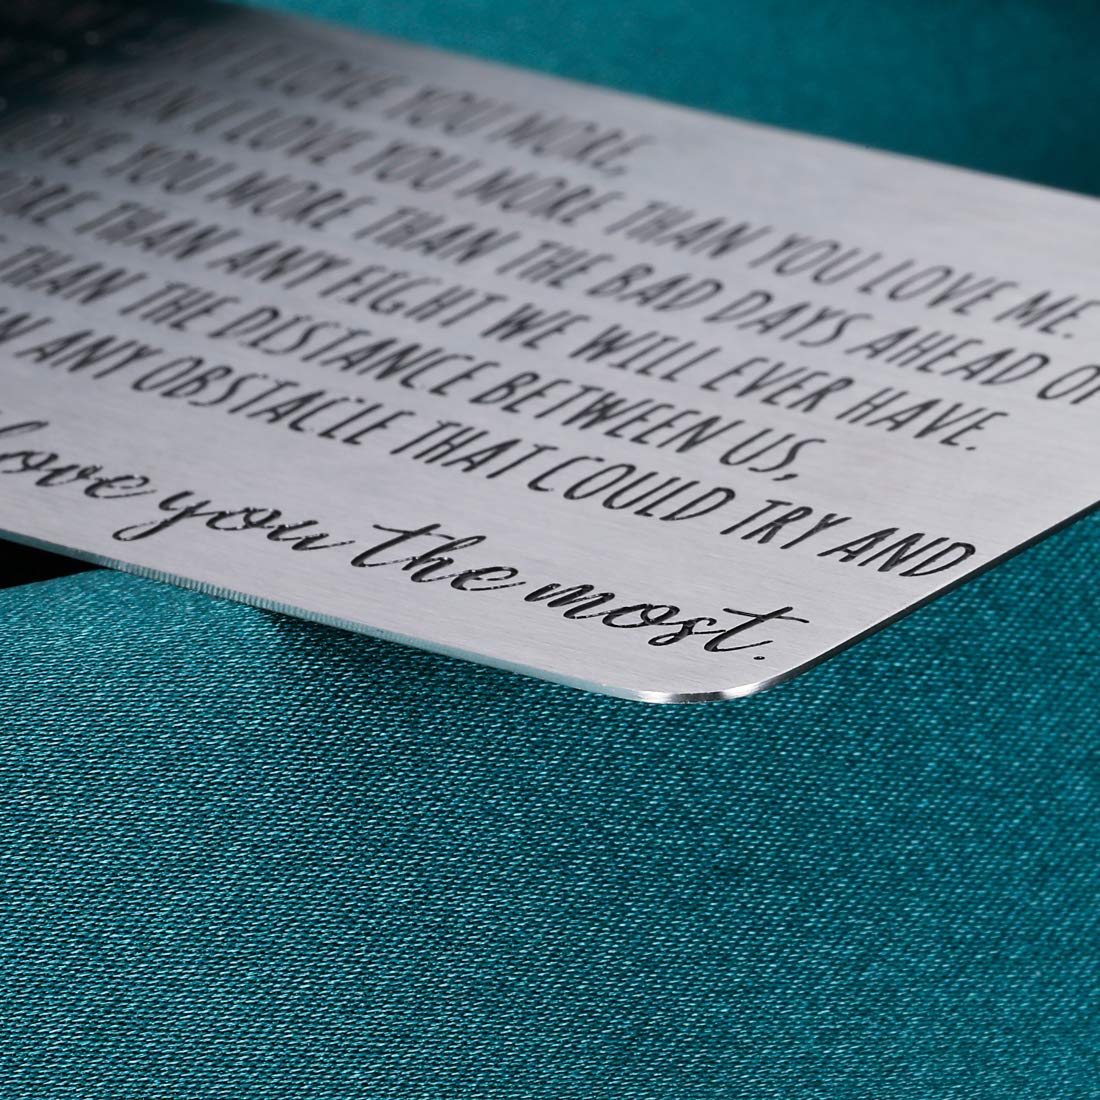 I LOVE YOU MORE,
MEAN I LOVE YOU MORE THAN YOU LOVE ME.
LOVE YOU MORE THAN THE BAD DAYS AHEAD OF
MORE THAN ANY FIGHT WE WILL EVER HAVE.
THAN THE DISTANCE BETWEEN US,
ANY OBSTACLE THAT COULD TRY AND
love you the most.